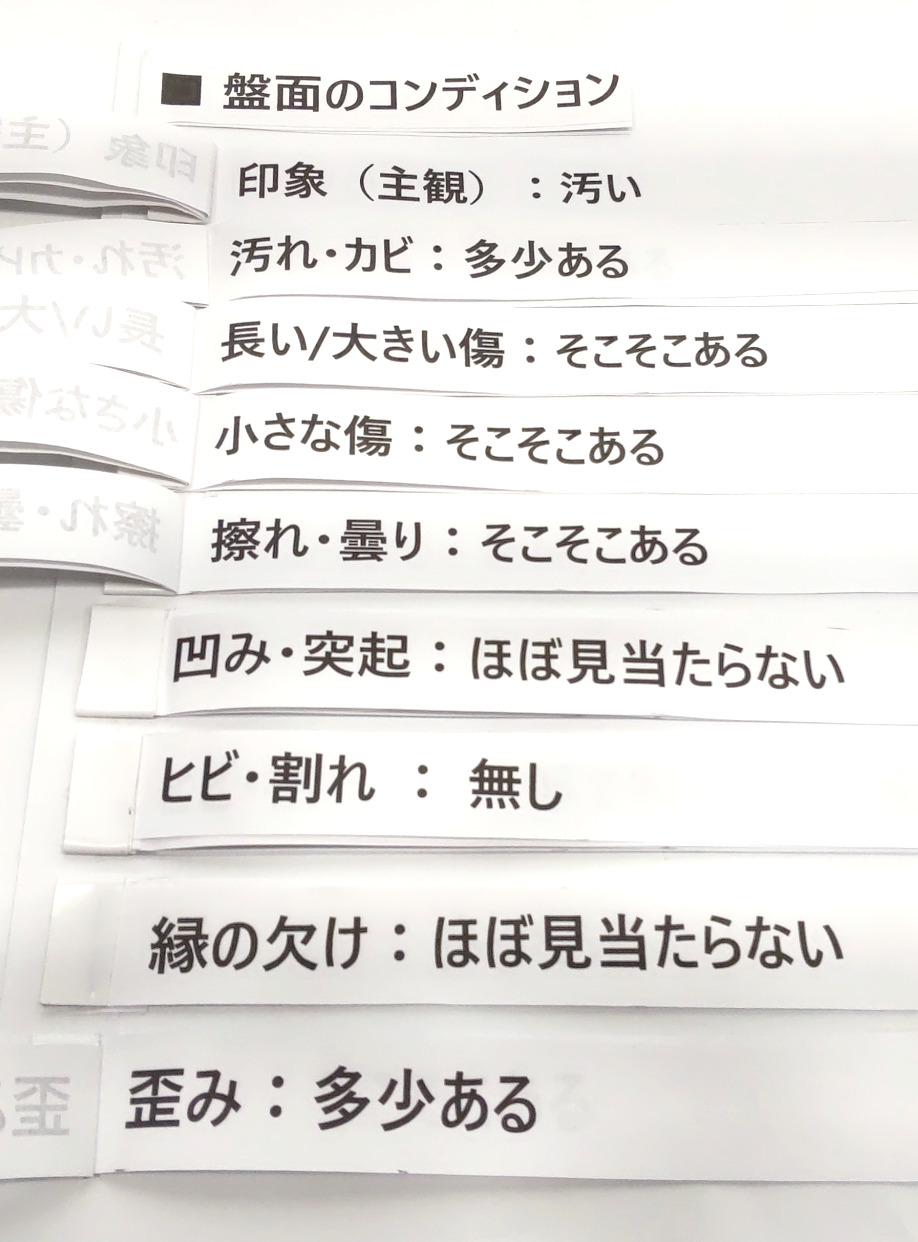 ■ 盤面のコンディション
印象（主観）：汚い
汚れ・カビ：多少ある
長い/大きい傷：そこそこある
小さな傷：そこそこある
擦れ・曇り：そこそこある
凹み・突起：ほぼ見当たらない
ヒビ・割れ ： 無し
縁の欠け：ほぼ見当たらない
歪み：多少ある